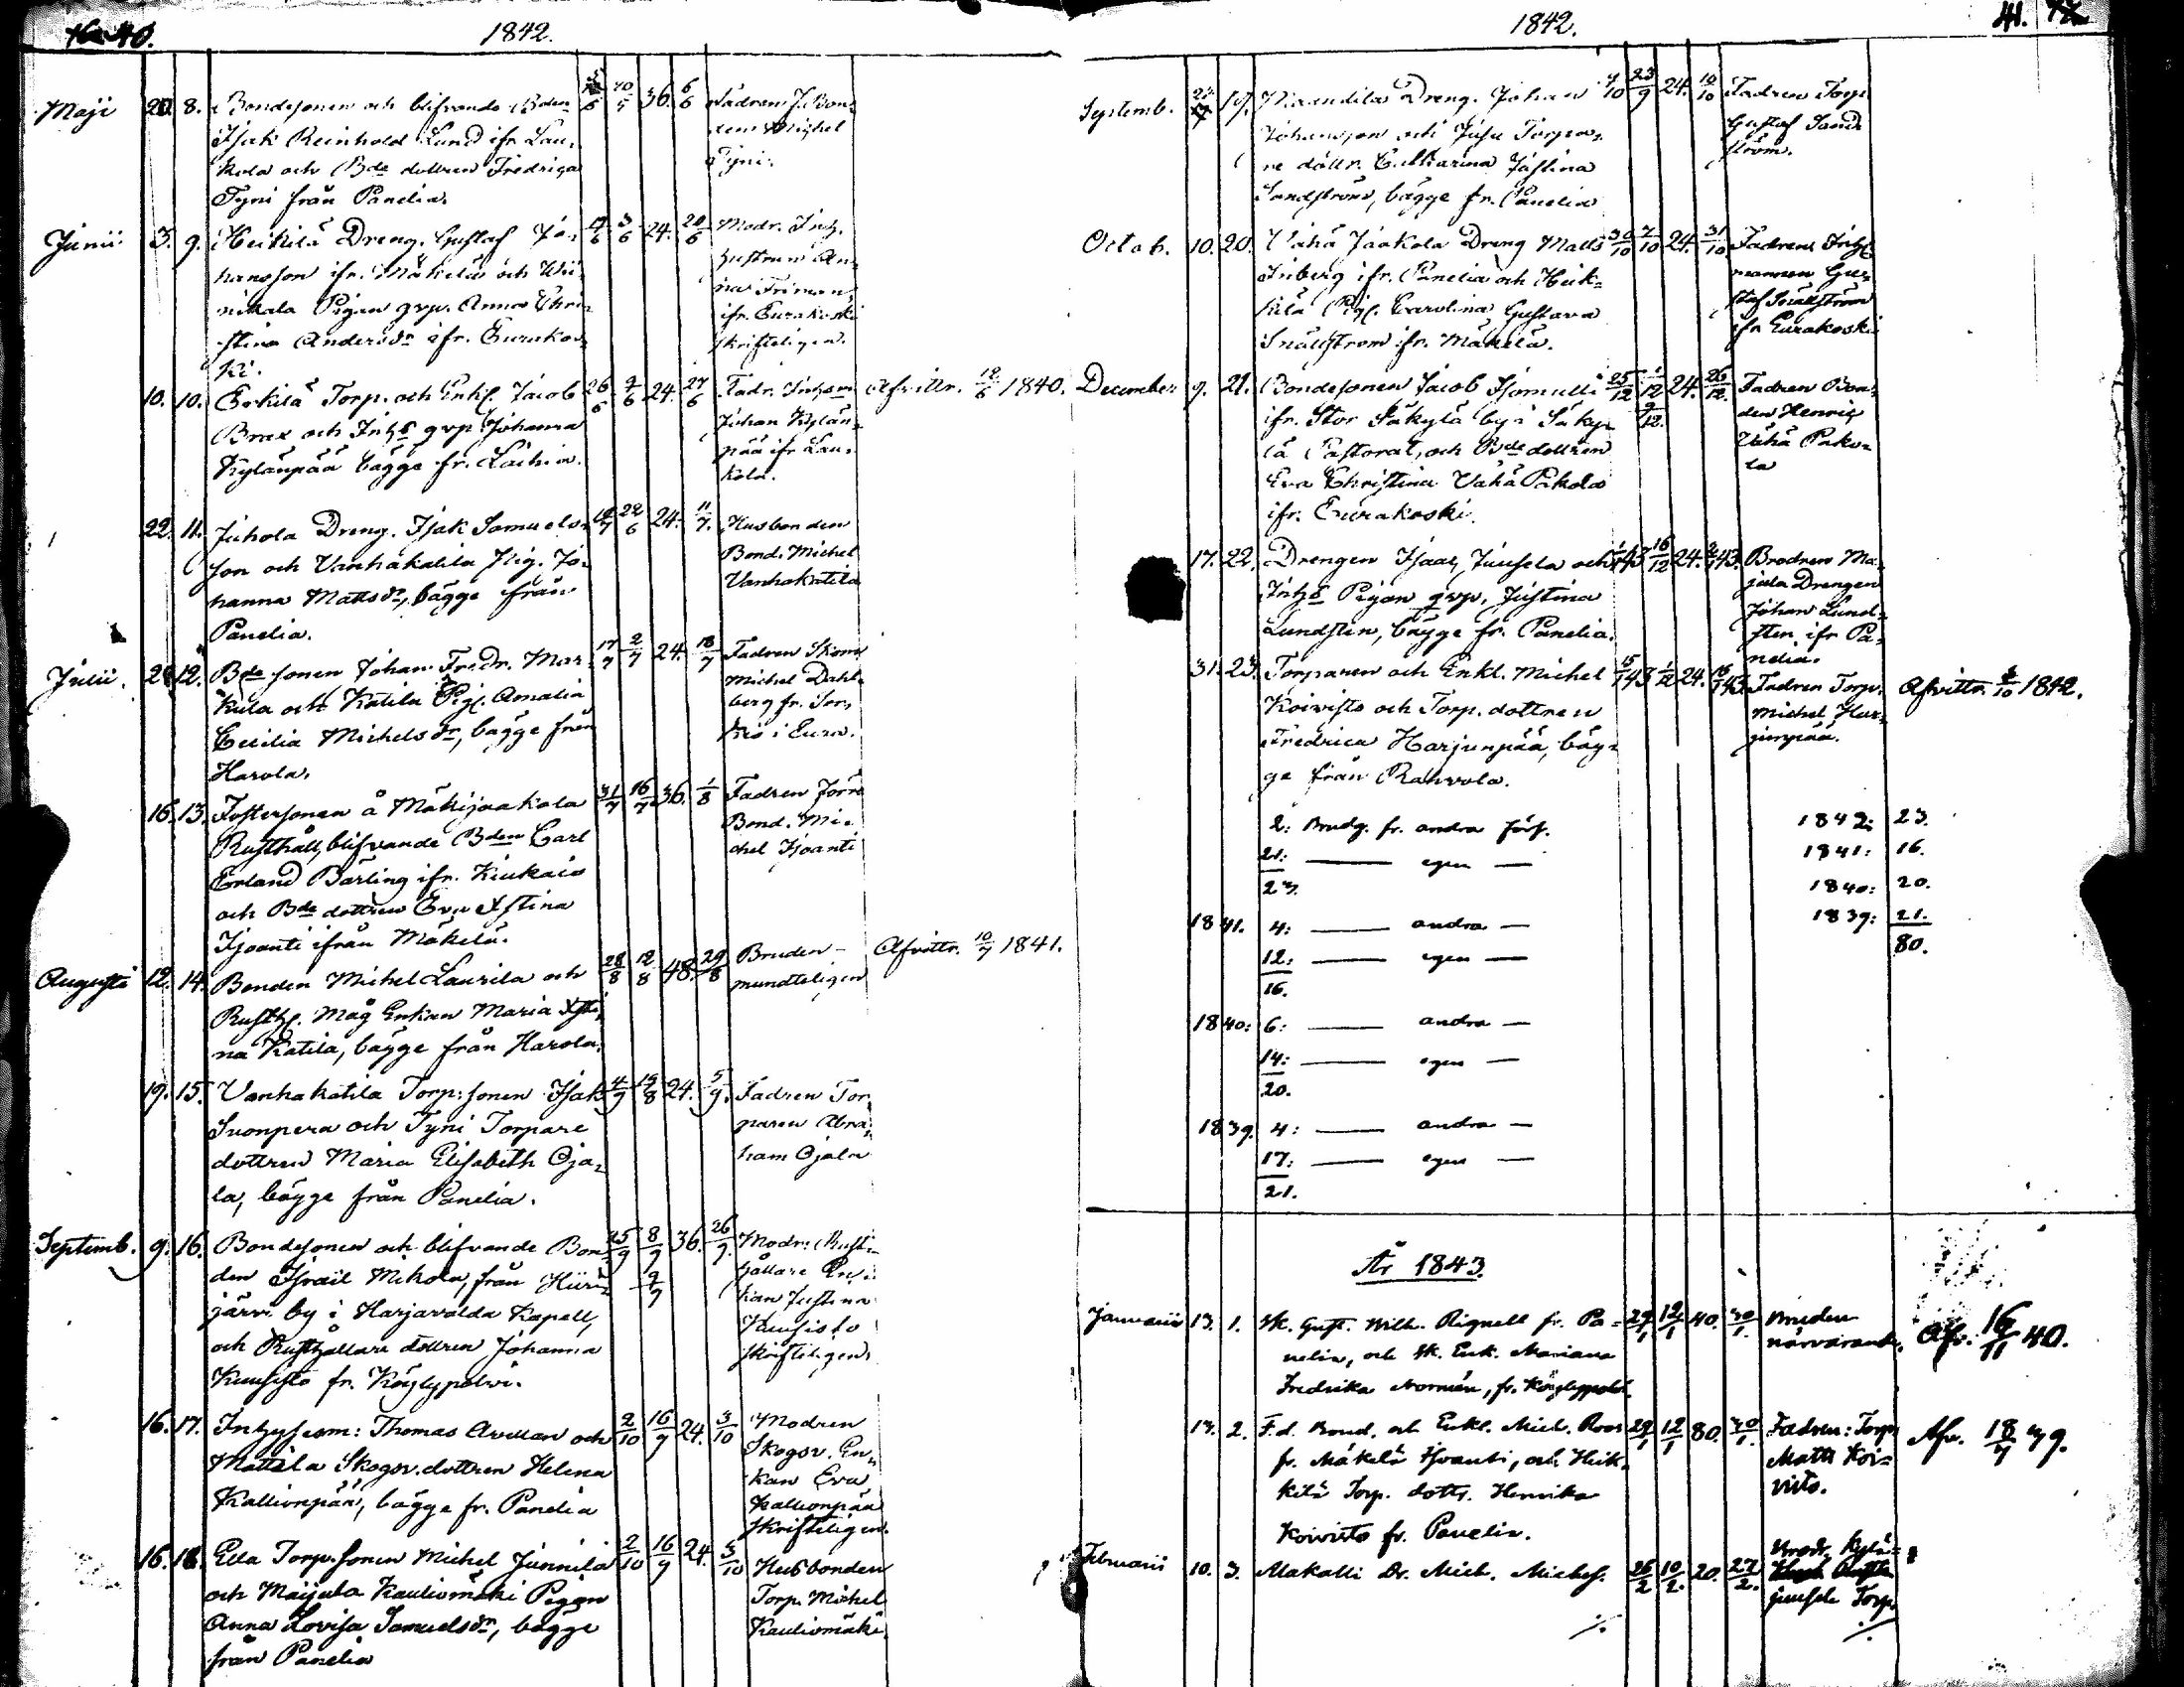 40.
1842.
Maji 20. 8. Bondesonen och blifvande Bden 36. 6/6 Fadren f. Bon-
Isak Reinhold Lund ifr. Lau- den Michel
kola och Bde dottren Fredrica Tyni.
Tyni från Panelia.
Junii 3. 9. Heikilä Dreng. Gustaf Jo- 3/6 24. 20/6 Modr. Inh.
hansson ifr. Mäkelä och Uhi- hustrun An-
nikala Pigan qvp. Anna Chri- na
stina Andersdr ifr. Eurakos- ifr. Eurakoski
ki. skrifteligen.
10. 10. Erkilä Torp. och Enkl. Jacob 26/6 9/6 24. 27/6 Fadr. Inhsm Afvittr. 12/6 1840.
Brax och Inhs qvp. Johanna Johan Kylän-
Kylänpää bägge fr. Lächia. pää ifr. Lau-
kola.
22. 11. Juhola Dreng. Isak Samuels- 10/7 22/6 24. 11/7. Husbonden
son och Vanhakatila Pig. Jo- Bond. Michel
hanna Mattsdr, bägge från Vanhakatila
Panelia.
Julii. 2. 12. Bde sonen Johan Fredr. Mar- 17/7 2/7 24. 18/7 Fadren Skom.
kula och Katila Pig. Amalia Michel Dahl-
Cecilia Michelsdr, bägge från berg fr. Sor-
Harola. kis i Eura.
16. 13. Fostersonen å Mäkijaakola 31/7 16/7 36. 1/8 Fadren förre
Rusthåll, blifvande Bden Carl Bond. Mi-
Erland Bärling ifr. Kiukais chel Isoanti
och Bde dottren Eva Xstina
Isoanti ifrån Mäkelä.
Augusti 12. 14. Bonden Michel Laurila och 28/8 12/8 48. 29/8 Bruden Afvittr. 10/7 1841.
Rusth. Måg Enkan Maria Xsti- mundteligen
na Katila, bägge från Harola.
19. 15. Vanhakatila Torp: sonen Isak 4/9 19/8 24. 5/9. Fadren Tor-
Suonpera och Tyni Torpare paren Abra-
dottren Maria Elisabeth Oja- ham Ojala
la, bägge från Panelia.
Septemb. 9. 16. Bondesonen och blifvande Bon- 25/9 8/9 36. 26/9. Modr: Rust-
den Israil Mikola, från Hiir- 9/9 hållare En-
järvi by i Harjavalda Kapell, kan Justina
och Rusthållare dottren Johanna Kuusisto
Kuusisto fr. Köylypolvi. skrifteligen.
16. 17. Inhysesm: Thomas Avellan och 2/10 16/9 24. 3/10 Modren
Mattila Skogsv. dottren Helena Skogsv. En-
Kallionpää, bägge fr. Panelia kan Eva
Kallionpää
skrifteligen.
16. 18. Eka Torp. sonen Michel Junnila 2/10 16/9 24. 3/10 Husbonden
och Maijala Kauliomäki Pigan Torp. Michel
Anna Lovisa Samuelsdr, bägge Kauliomäki.
från Panelia
1842.
41.
Septemb. 19. Dreng. Johan 9/10 23/9 24. 10/10 Fadren Torp.
Johansson och Torpa- Gustaf Sand-
re dottr. Catharina Justina ström.
Sandström, bägge fr. Panelia
Octob. 10. 20. Vähä Jaakola Dreng Matts 30/10 24. 31/10 Fadren Inhs
Inberg ifr. Panelia och Heik- mannen Gu-
kilä Pig. Carolina Gustava staf Snällström
Snällström ifr. Mäkelä. ifr. Eurakoski
December 9. 21. Bondesonen Jacob Isomulli 25/12 24. 26/12. Fadren Bon-
ifr. Stor Säkylä by i Säky- 9/12. den Henric
lä Pastorat, och Bde dottren Vähä Pako-
Eva Christina Vähä Pakola la
ifr. Eurakoski.
17. 22. Drengen Isaac Juusela och 43 16/12 24. 43. Brodren Ma-
Inhs Pigan qvp. Justina jala Drengen
Lundsten, bägge fr. Panelia. Johan Lund-
sten ifr Pa-
nelia.
31. 23. Torparen och Enkl. Michel 15/1 43 24. 16/1 43. Fadren Torp. Afvittr. 1842.
Koivisto och Torp. dottren Michel Har-
Fredrica Harjunpää, bäg- junpää.
ge från Rahvola.
2: Brudg. fr. andra förs. 1842: 23.
21: — egen — 1841: 16.
23. 1840: 20.
1839: 21.
1841. 4: — andra — 80.
12: — egen —
16.
1840: 6: — andra —
14: — egen —
20.
1839. 4: — andra —
17: — egen —
21.
År 1843.
Januarii 13. 1. Sk. Gust. Wilh. Rignell fr. Pa- 29/1 12/1 40. 30/1. Bruden
nelia, och Sk. Enk. Mariana närvarande. Afv. 16/11 40.
Fredrika Norman, fr. Köylypolvi.
13. 2. F.d. Bond. och Enkl. Mich. Roos 29/1 12/1 80. 30/1. Fadren: Torp. Afv. 18/7 39.
fr. Mäkelä Isoanti, och Heik- Matts Koi-
kilä Torp. dottr. Henrika visto.
Koivisto fr. Panelia.
Februarii 10. 3. Alakalli Dr. Mich. Michels. 26/2 10/2. 20. 27/2. Brodr. Kylä-
juusela Torp.